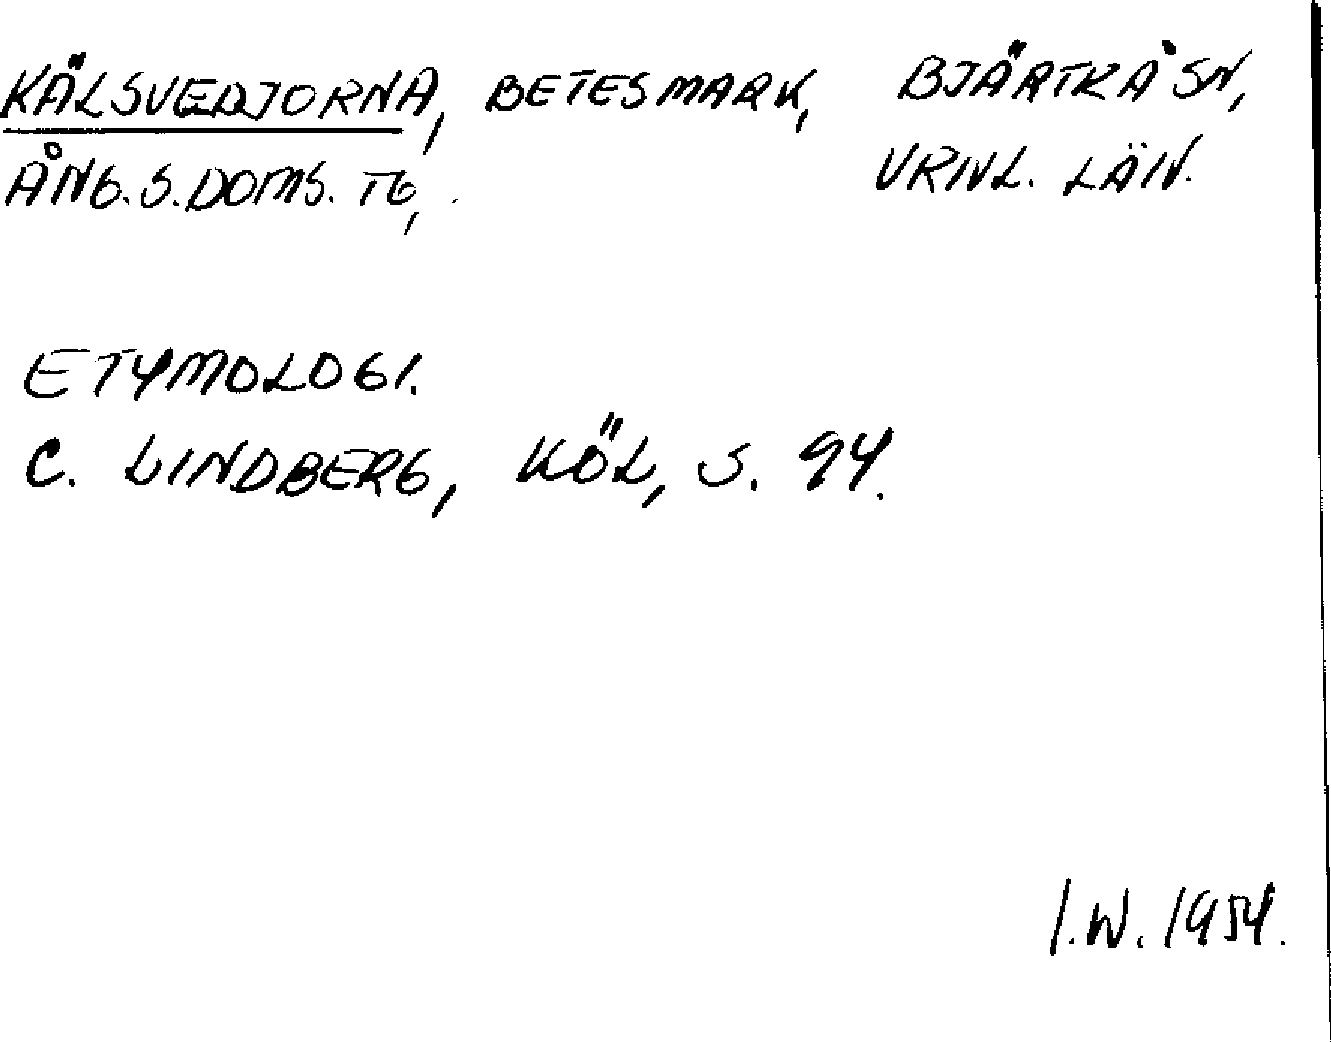 KÄLSVEDJORNA, BETESMARK, BJÄRTRÅ SN,
ÅNG. S. DOMS. TG, VRNL. LÄN.
ETYMOLOGI.
C. LINDBERG, KÖL, S. 94.
I.W. 1954.